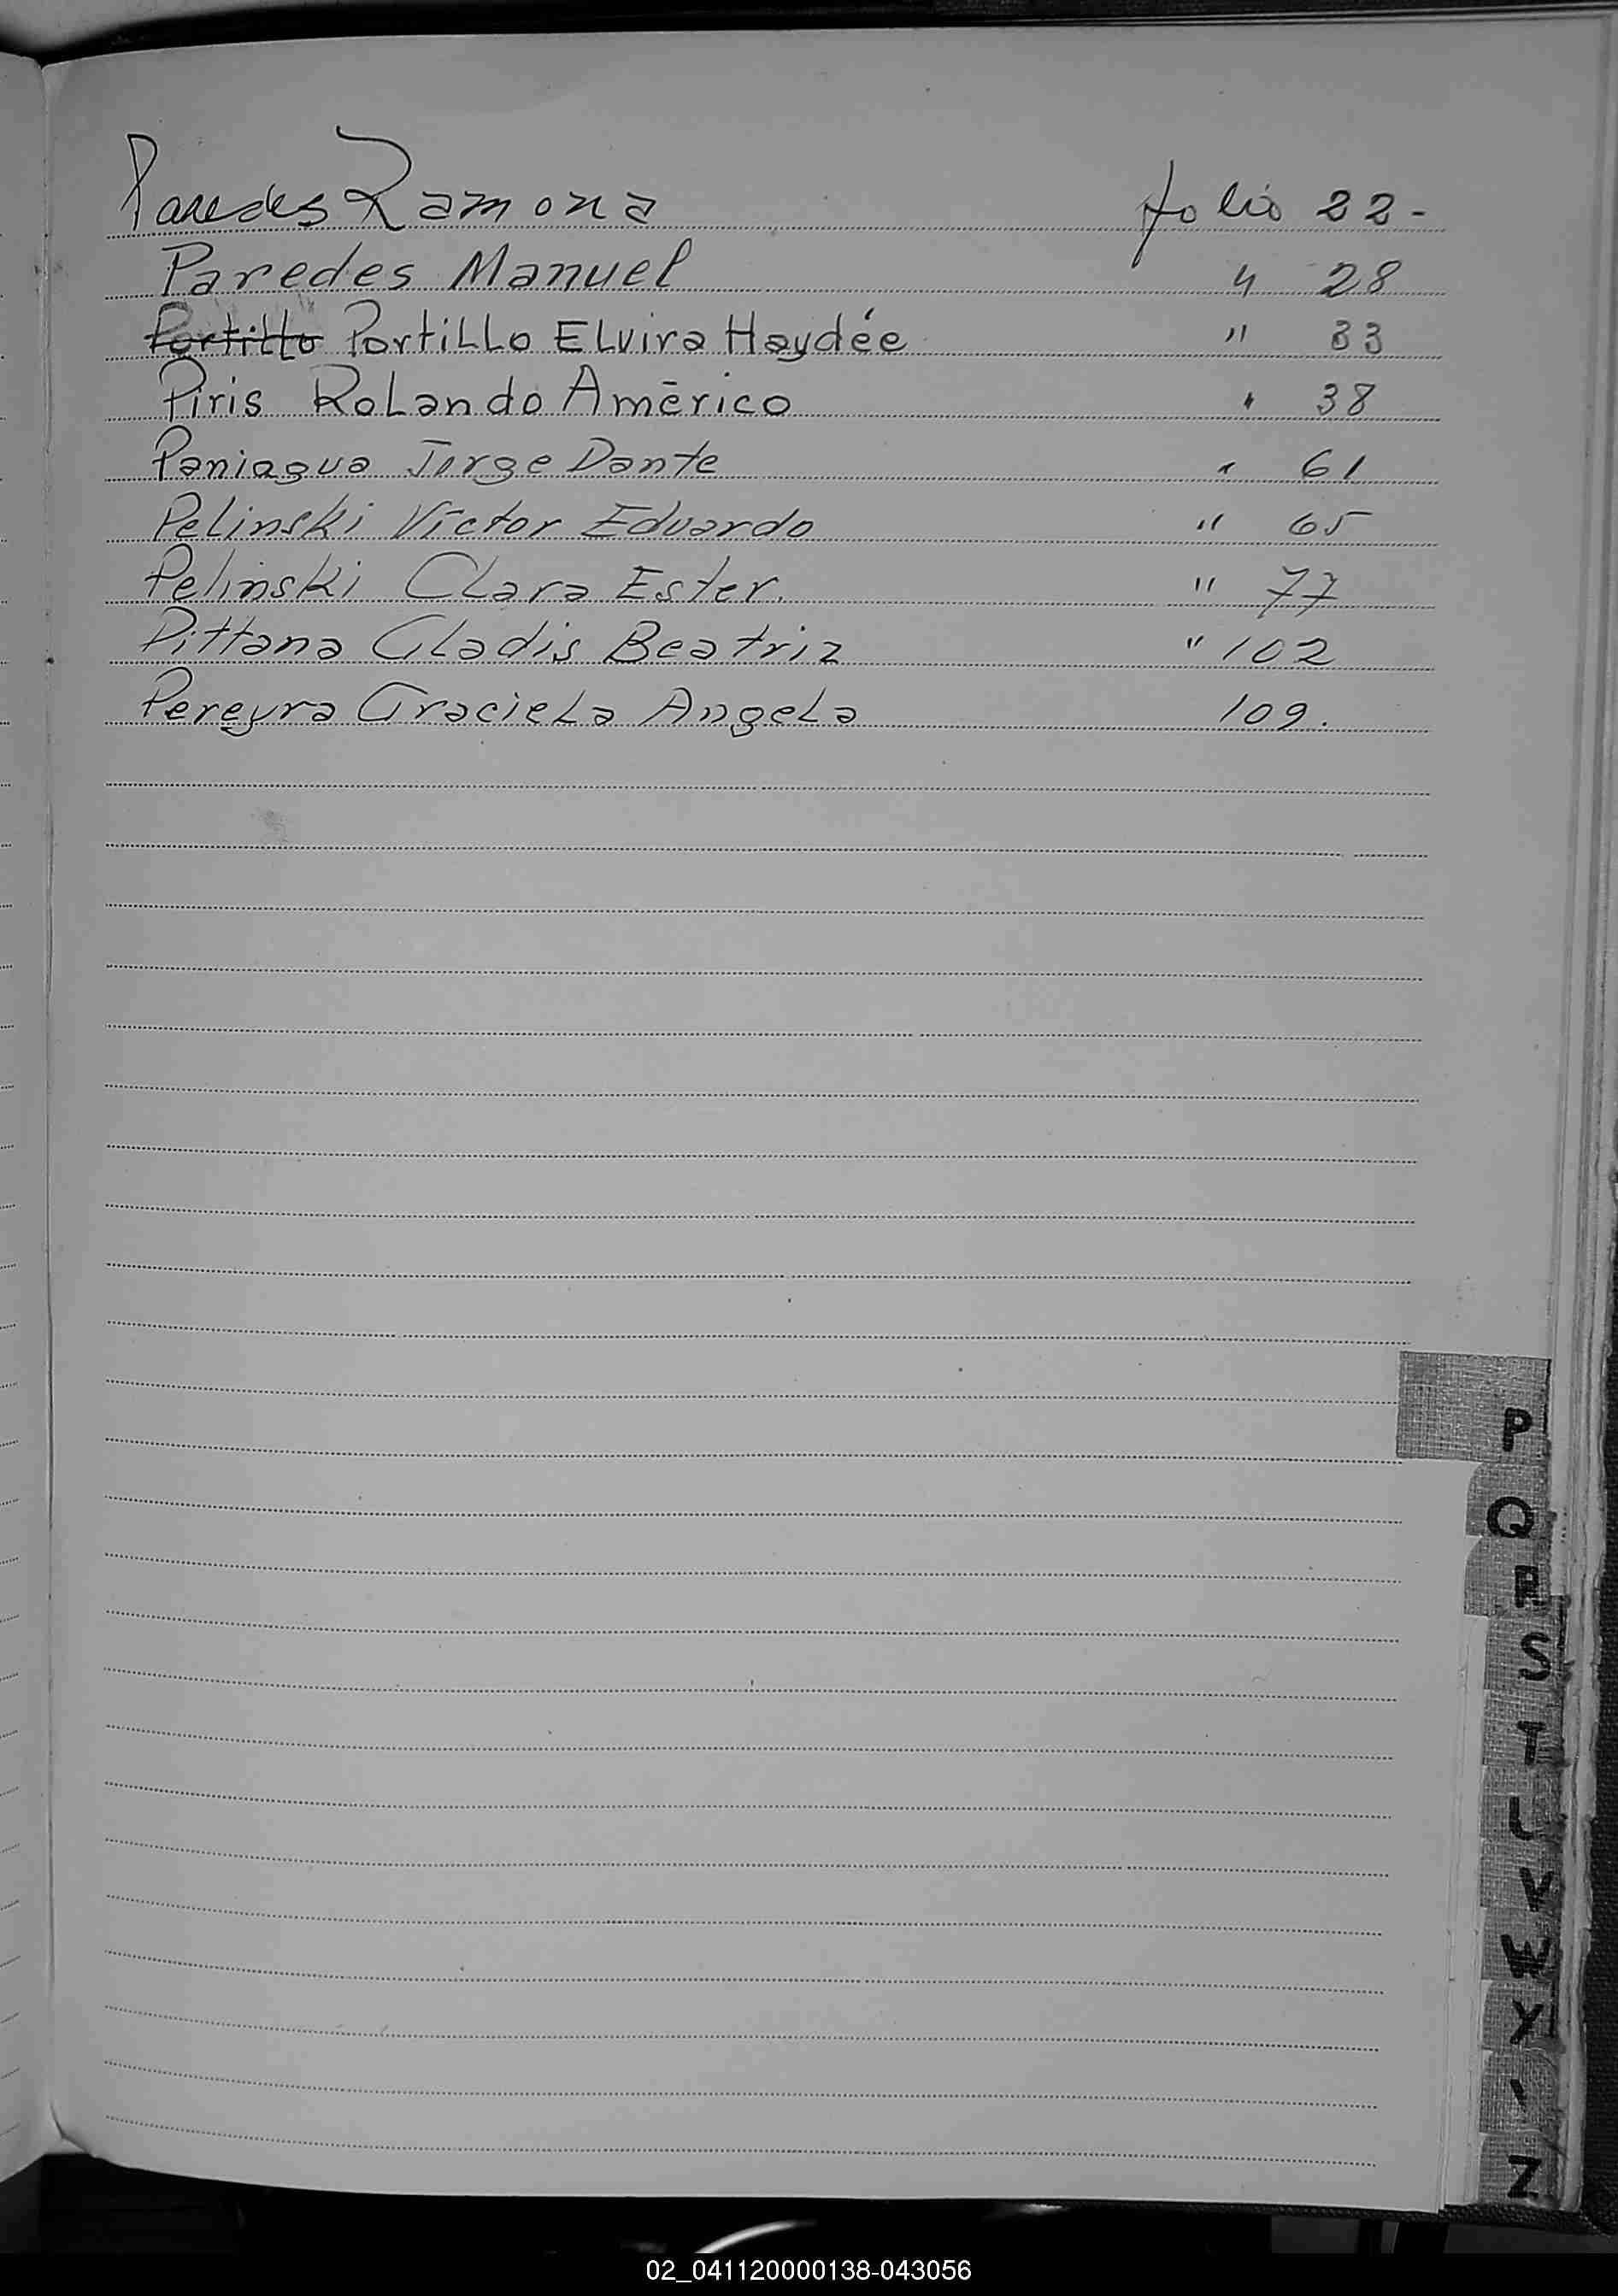 Paredes Ramona folio 22-
Paredes Manuel " 28
Portillo Portillo Elvira Haydée " 33
Piris Rolando Américo " 38
Paniagua Jorge Dante " 61
Pelinski Víctor Eduardo " 65
Pelinski Clara Ester. " 77
Pittana Gladis Beatriz " 102
Pereyra Graciela Angela 109.
P
Q
R
S
T
V
W
Z
02_041120000138-043056